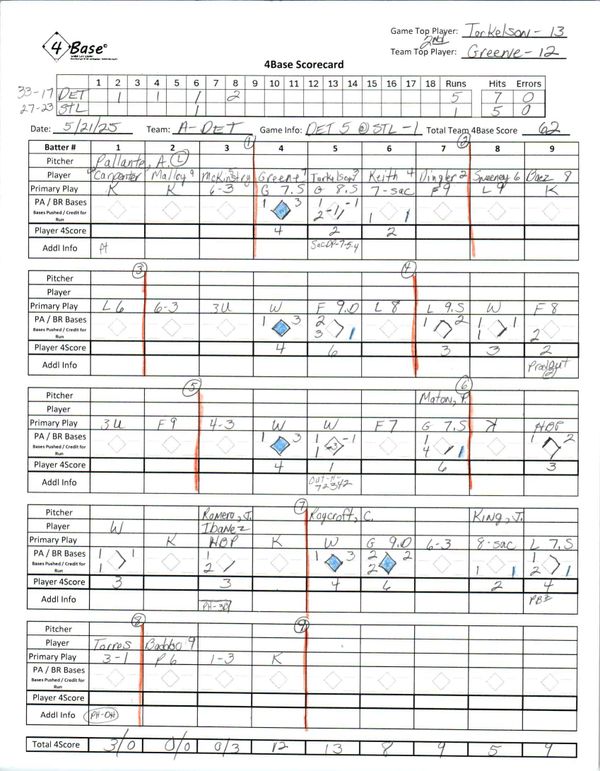 4 Base©
Game Top Player: Torkelson - 13
2nd
Team Top Player: Greene - 12
4Base Scorecard
1 2 3 4 5 6 7 8 9 10 11 12 13 14 15 16 17 18 Runs Hits Errors
33-17 DET 1 1 1 2 5 7 0
27-23 STL 1 1 5 0
Date: 5/21/25 Team: A-DET Game Info: DET 5 @ STL - 1 Total Team 4Base Score 62
Batter # 1 2 3 4 5 6 7 8 9
Pitcher Pallante, A. (L)
Player Carpenter Malloy 9 McKinstry Greene 7 Torkelson 3 Keith 4 Dingler 2 Sweeney 6 Baez 8
Primary Play K K 6-3 G 7.5 G 8.5 7-sac F9 L9 K
PA / BR Bases 1 3 1 2 -1 1 -1 1 1
Bases Pushed / Credit for Run
Player 4Score 4 2 2
Addl Info
Pitcher
Player
Primary Play L6 6-3 3U W F 9.0 L8 L 9.5 W F8
PA / BR Bases 1 3 2 3 1 1 2 1 1 1 2
Bases Pushed / Credit for Run
Player 4Score 4 6 3 3 2
Addl Info
Pitcher Maton, P.
Player
Primary Play 3U F9 4-3 W W F7 G 7.5 K HBP
PA / BR Bases 1 3 1 -1 1 4 1 1 2
Bases Pushed / Credit for Run
Player 4Score 4 1 6 3
Addl Info
Pitcher Romero, J. Roycroft, C. King, J.
Player W Ibanez
Primary Play K HBP K W G 9.0 6-3 8-sac L 7.5
PA / BR Bases 1 1 1 1 2 1 3 2 2 2 1 1 2 1
Bases Pushed / Credit for Run
Player 4Score 3 3 4 6 2 4
Addl Info PH-3B
Pitcher
Player Torres Baddoo 9
Primary Play 3-1 P6 1-3 K
PA / BR Bases
Bases Pushed / Credit for Run
Player 4Score
Addl Info PH-DH
Total 4Score 3/0 0/0 0/3 12 13 8 9 5 9